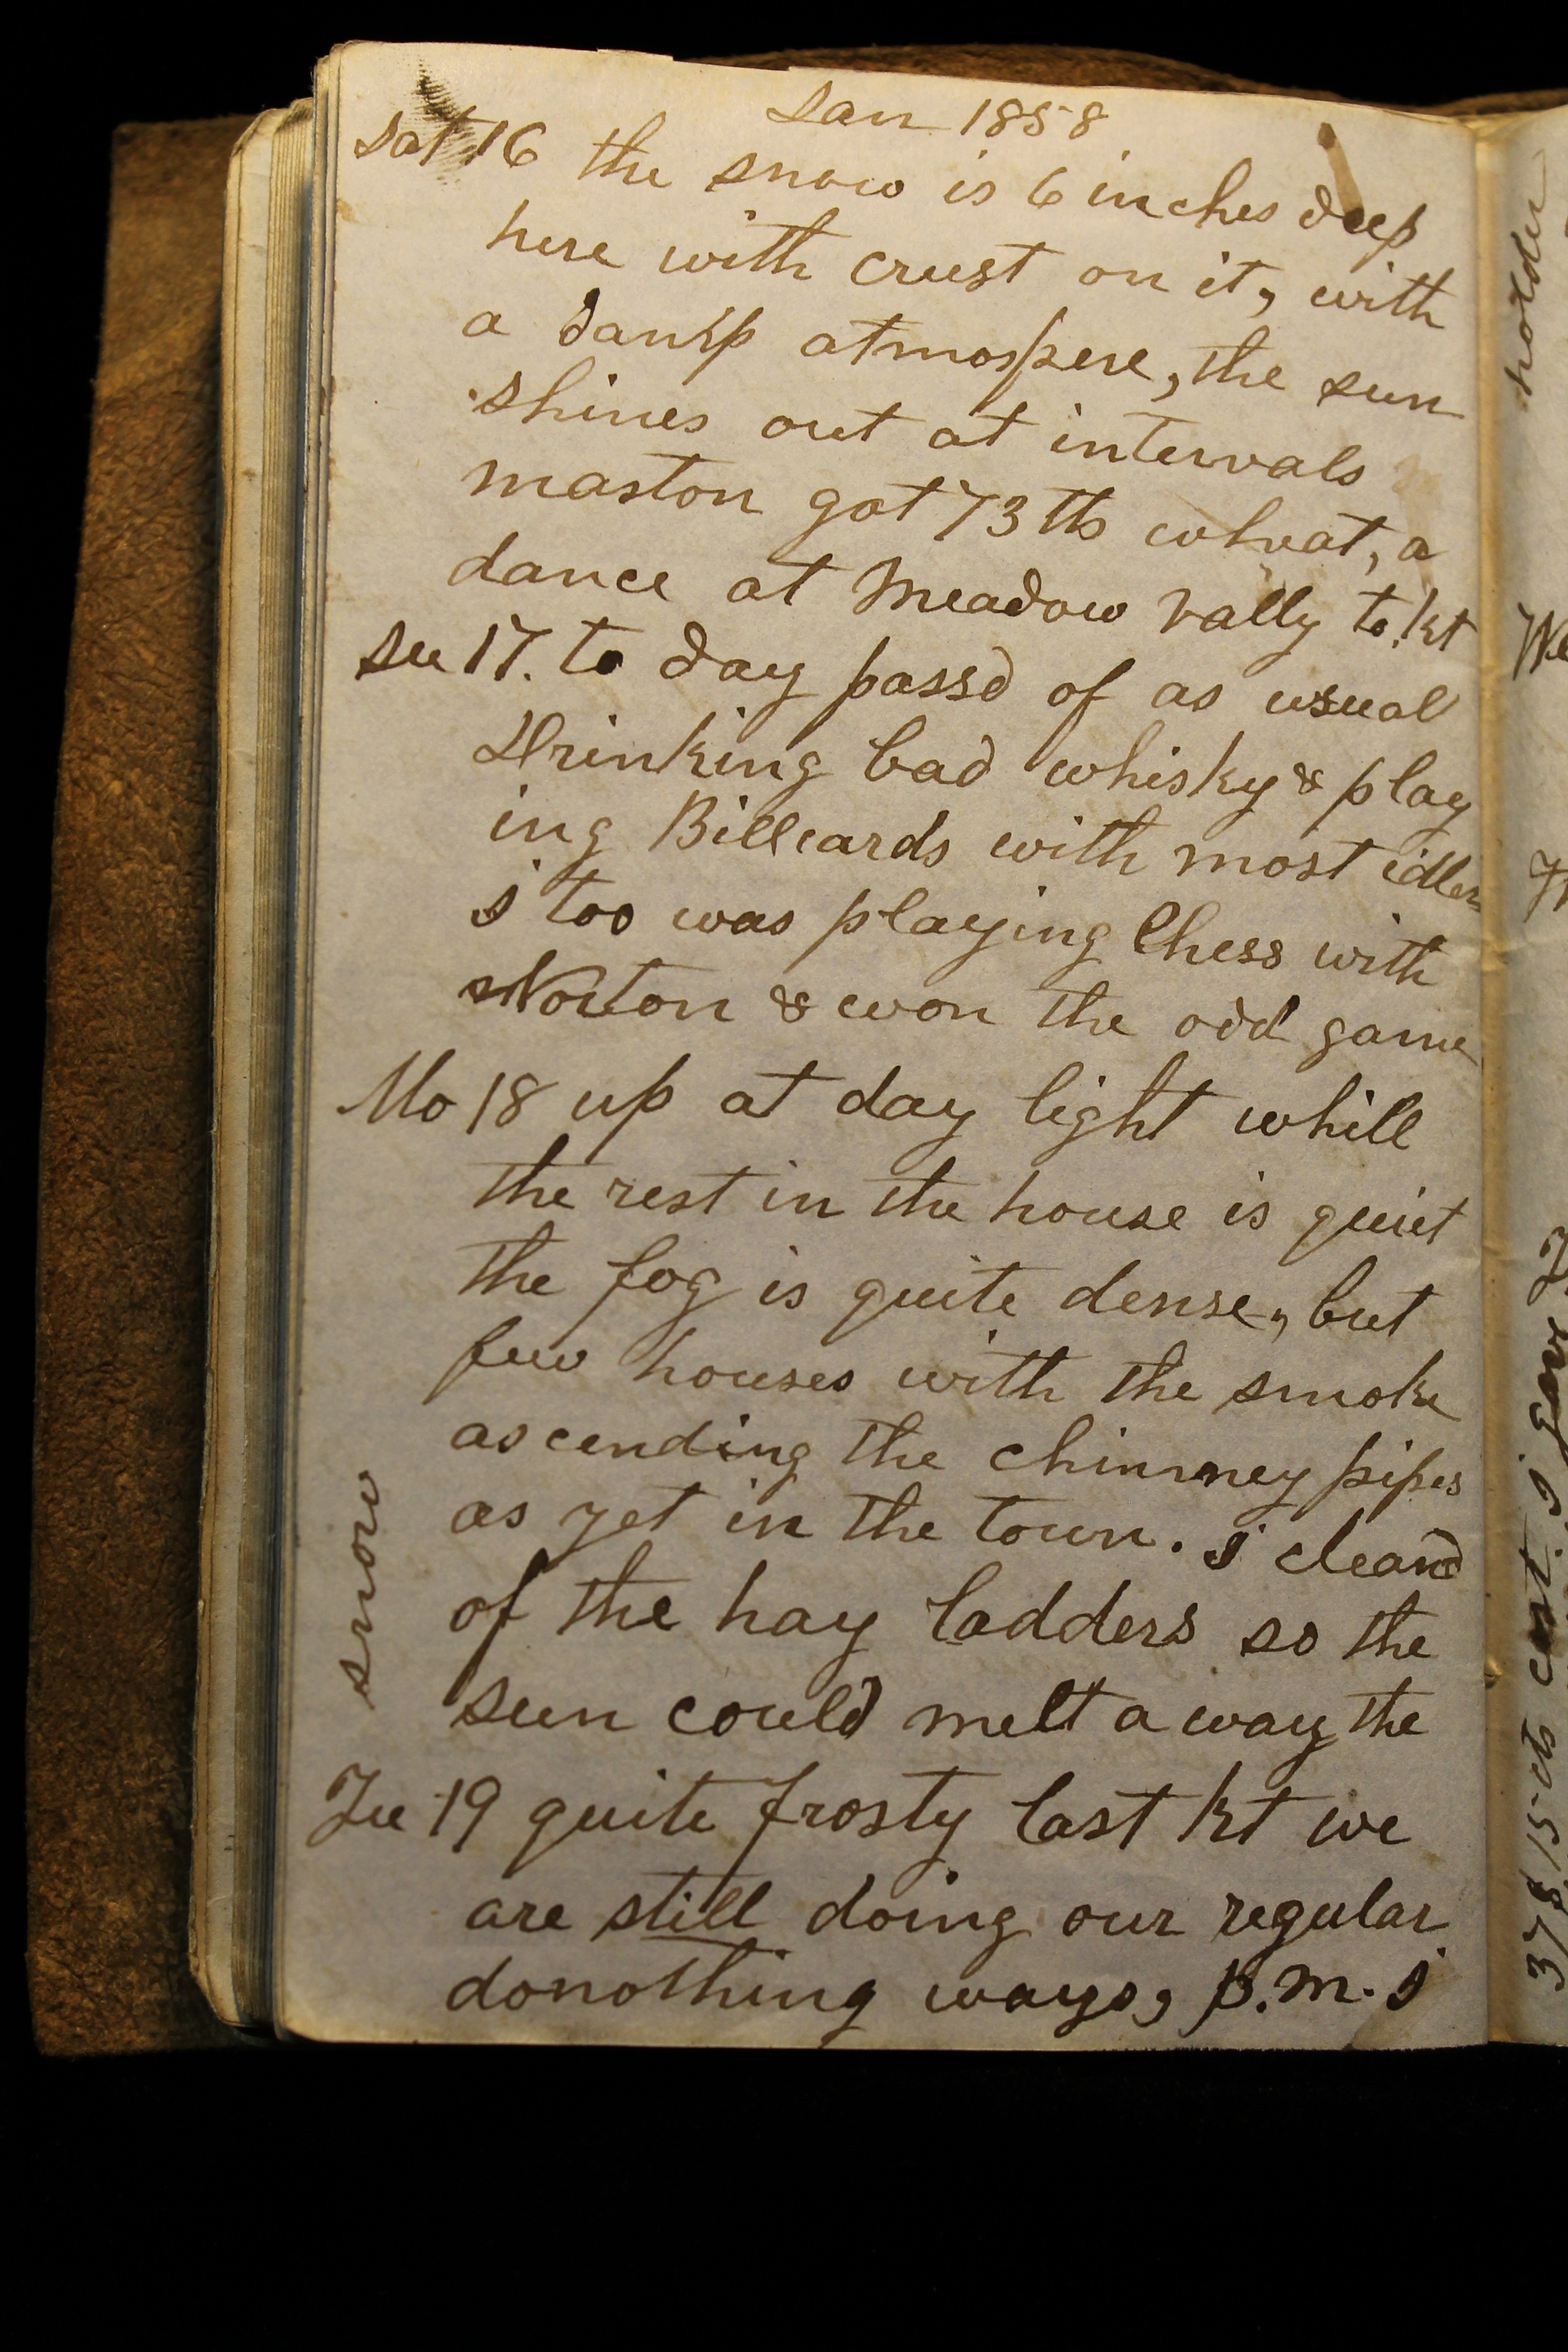 Jan 1858
Sat 16 the snow is 6 inches deep
here with crust on it, with
a damp atmospere, the sun
shines out at intervals
maston got 73 lb wheat, a
dance at Meadow Vally to kt
Su 17. to day passd of as usual
Drinking bad whisky & play
ing Billeards with most idlers
I too was playing Chess with
Norton & won the odd game
Mo 18 up at day light whill
the rest in the house is quiet
the fog is quite dense, but
few houses with the smoke
ascending the chimney pipes
as yet in the town. I cleand
of the hay ladders so the
sun could melt a way the
snow
Tu 19 quite frosty last kt we
are still doing our regular
donothing ways, p.m. I
holder
We
37$ 15 cts cost. I gave